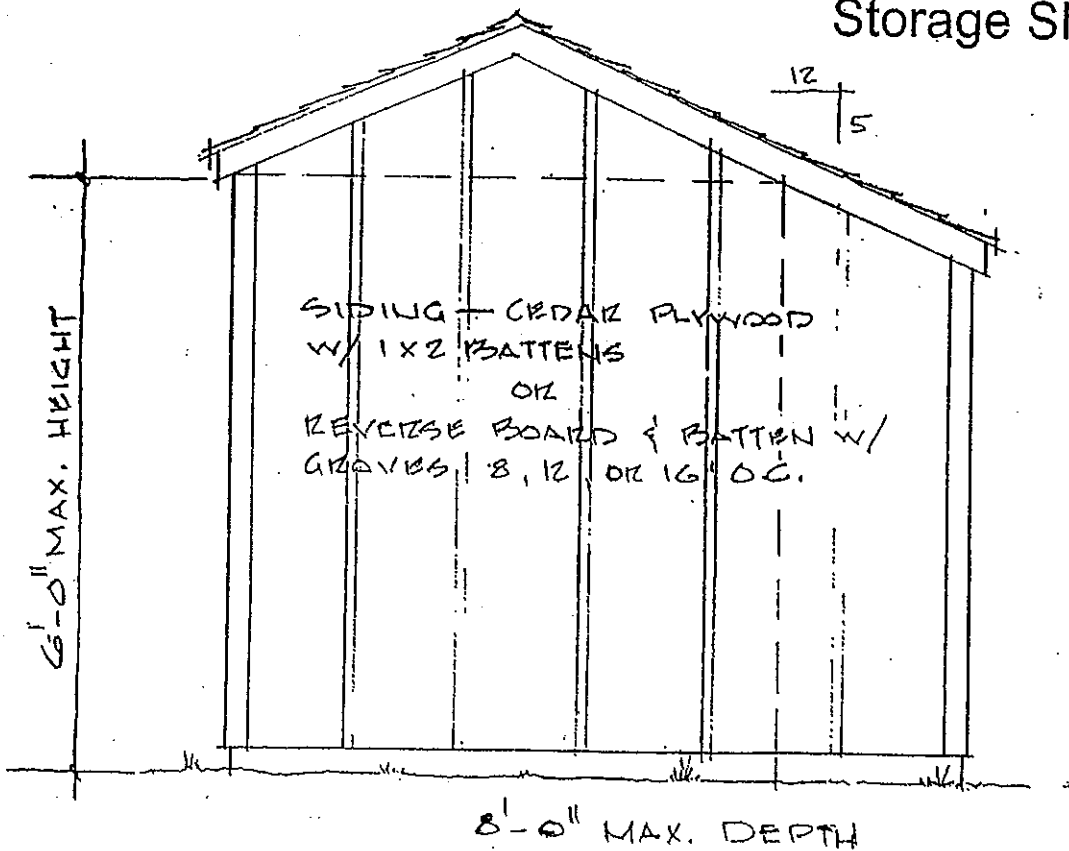 Storage
12
5
6'-0" MAX. HEIGHT
SIDING - CEDAR PLYWOOD
W/ 1X2 BATTENS
OR
REVERSE BOARD & BATTEN W/
GROVES 8, 12 OR 16" O.C.
8'-0" MAX. DEPTH